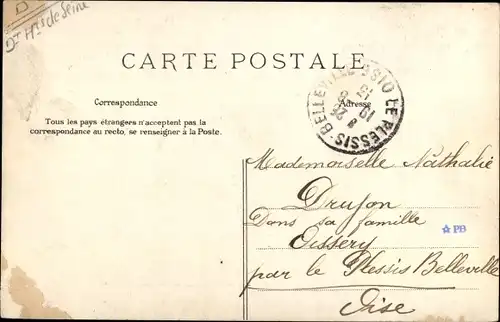 D
Dt Hts de Seine
CARTE POSTALE
LE PLESSIS-BELLEVILLE
Correspondance
Adresse
Tous les pays étrangers n'acceptent pas la
correspondance au recto, se renseigner à la Poste.
Mademoiselle Nathalie
Drujon
Dans sa famille
Oissery
☆PB
par le Plessis Belleville
Oise